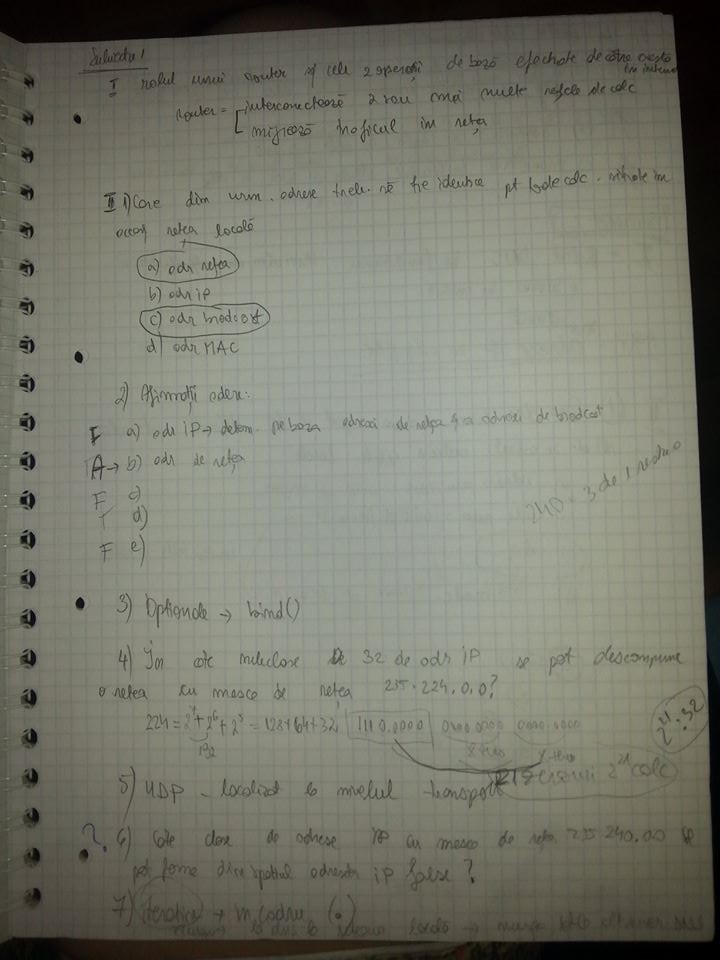 Subiectul 1
I rolul unui router și cele 2 operații de bază efectuate de către acesta
în internet
router = interconectează 2 sau mai multe rețele de calc
mișează traficul în rețea
II 1) Care din urm. adrese treb. să fie identice pt toate calc. situate în
aceași rețea locală
a) adr rețea
b) adr iP
c) adr brodcast
d) adr MAC
2) Afirmații adev:
F a) adr iP → determ. pe baza adresei de rețea și a adresei de brodcast
A → b) adr de rețea
F c)
d)
F e)
240 = 3 de 1 rediso
3) Opționale → bind()
4) În câte subclase de 32 de adr iP se pot descompune
o rețea cu masca de rețea 255.224.0.0?
224 = 2^7 + 2^6 + 2^5 = 128+64+32 1110.0000 0000.0000 0000.0000
192
2^21 : 32
5) UDP - localizat la nivelul transport
2^21 calc
? 6) Câte clase de adrese iP cu masca de rețea 255.240.0.0 se
pot forma din spațiul adreselor iP false?
7) iterativ → m. cadru (.)